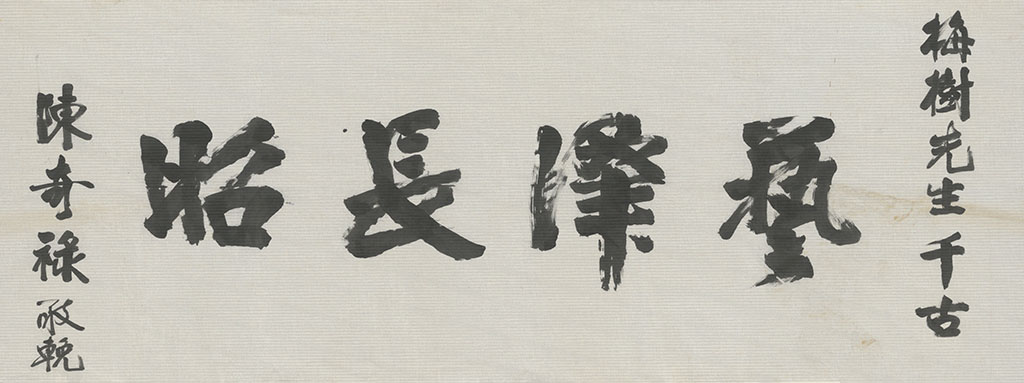 梅樹先生千古
藝澤長昭
陳奇祿敬輓